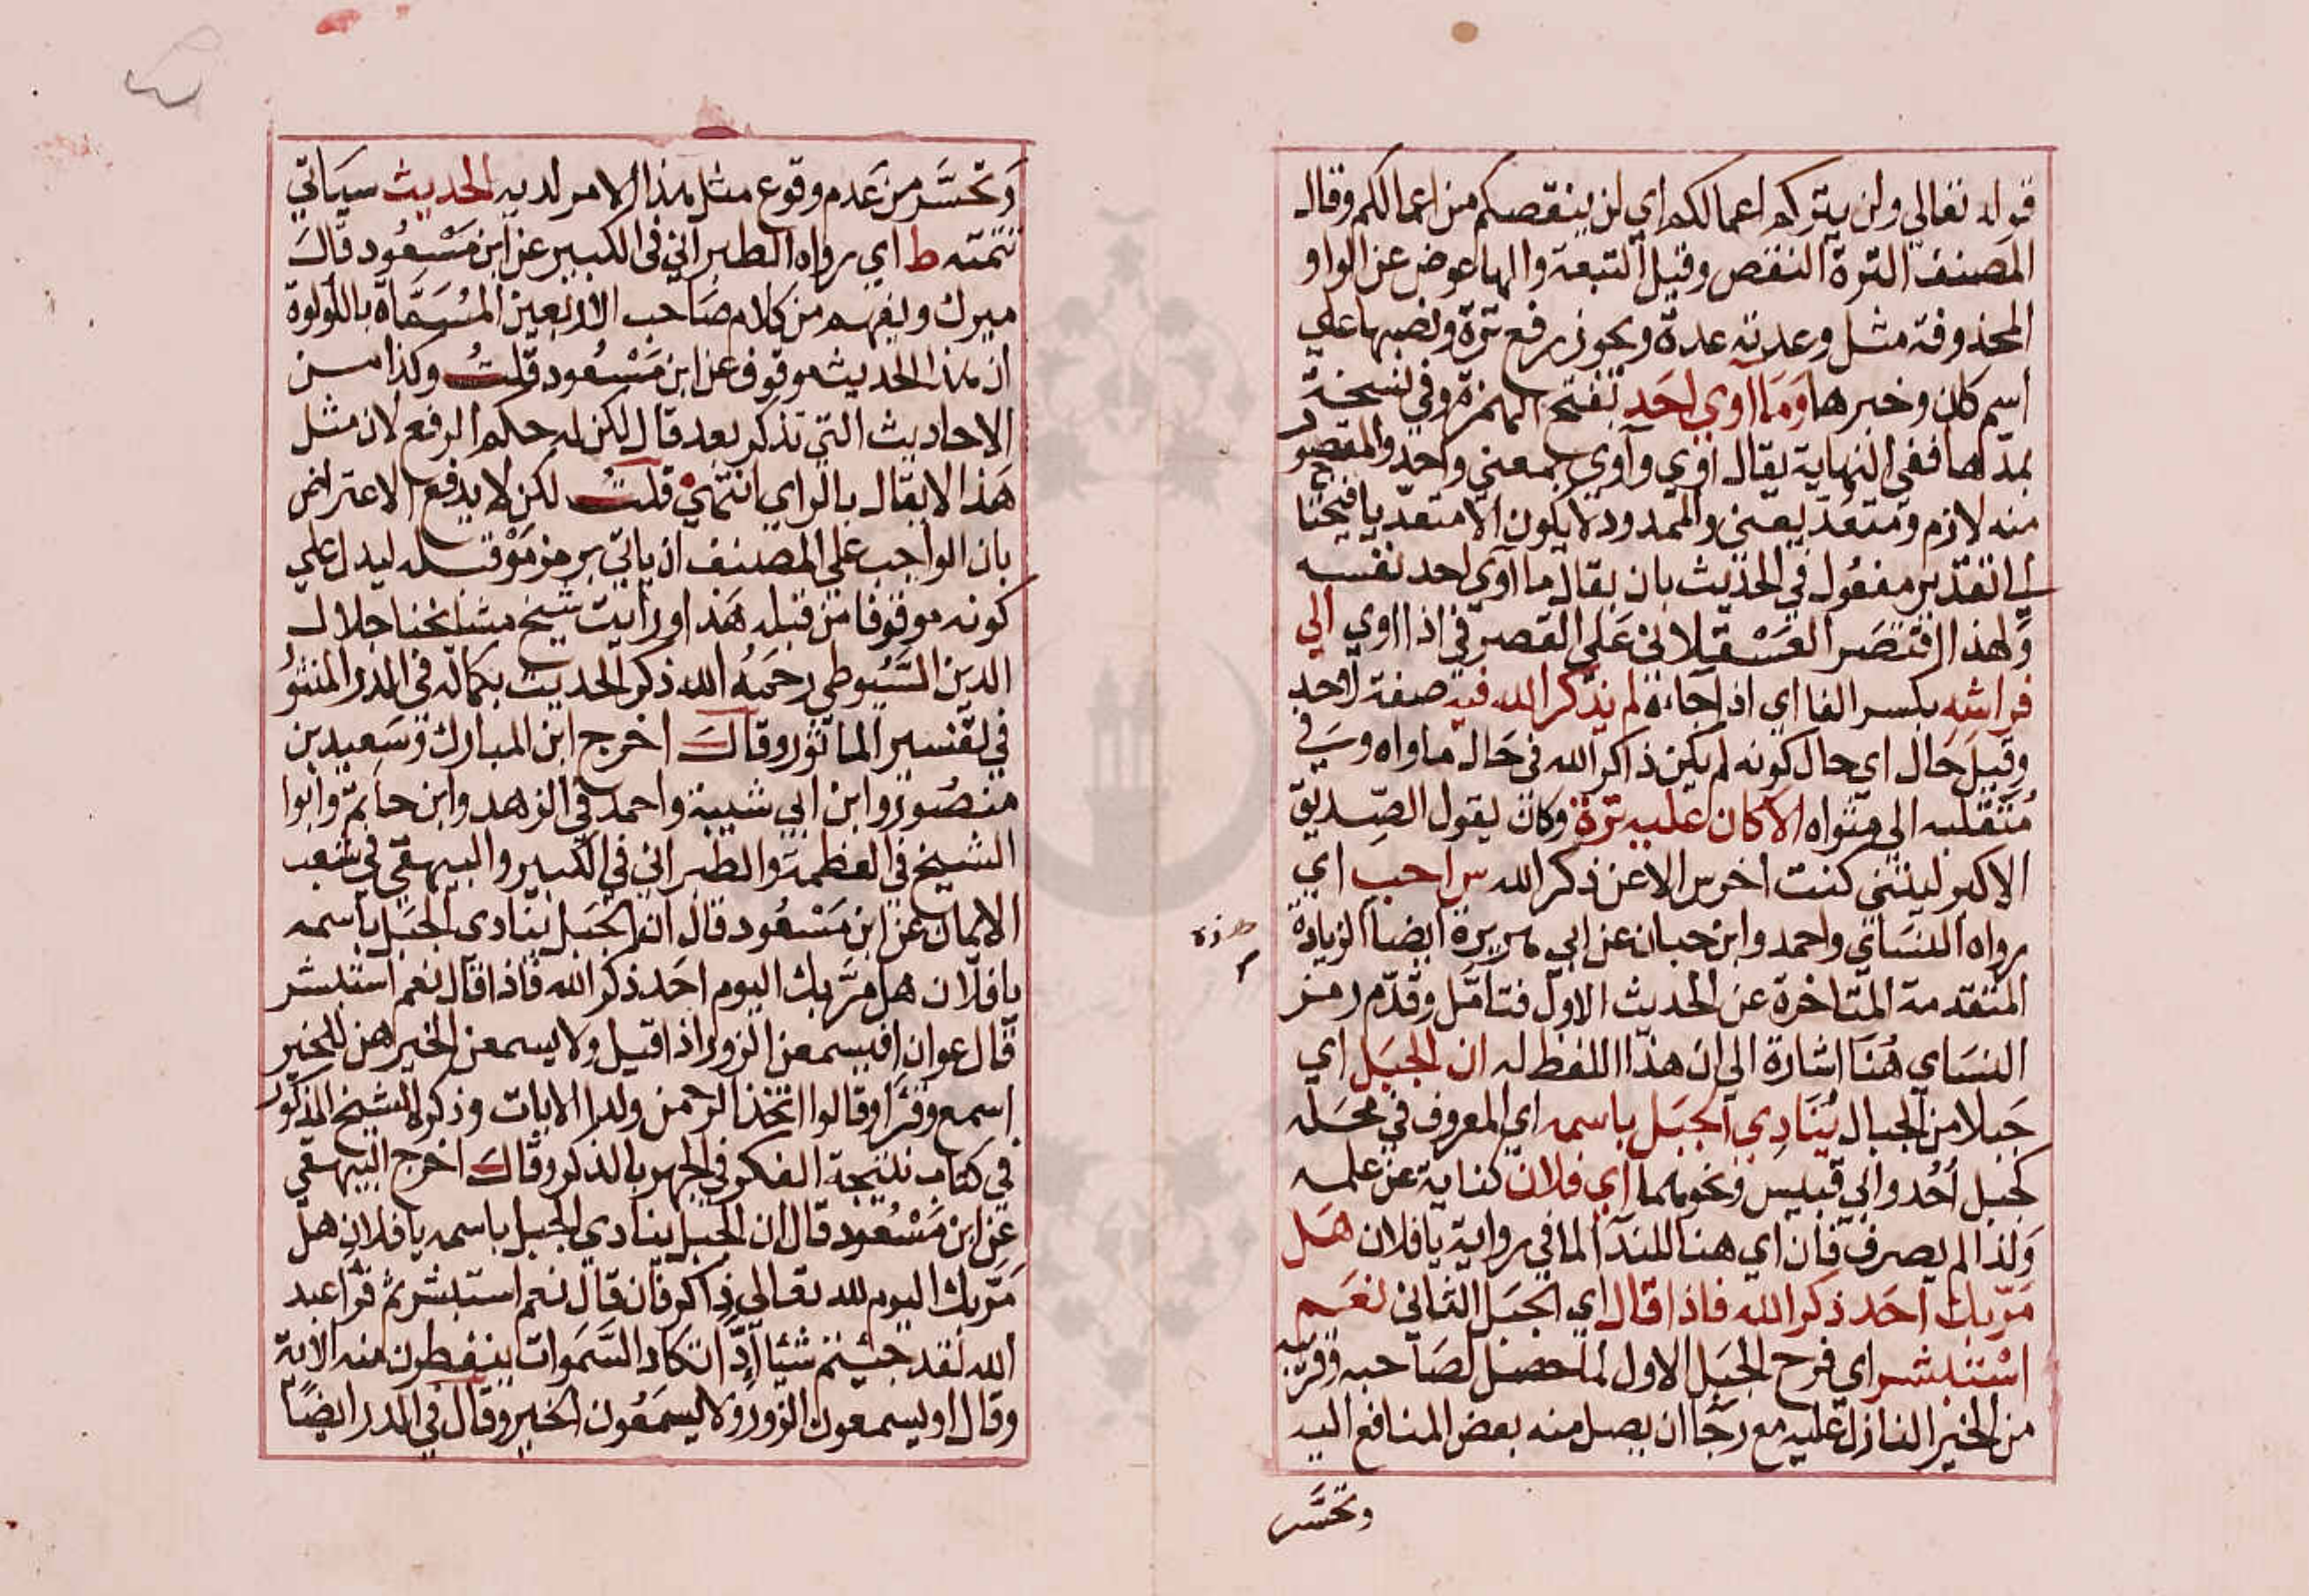 قوله تعالي ولن يتركم اعمالكم اي لن ينقصكم من اعمالكم وقال
المصنف الترة النقص وقيل التبعة والها عوض عن الواو
المحذوفة مثل وعدته عدة ويجوز رفع ترة ونصبها علي
اسم كان وخبرها وَمَا اوي احَد بفتح الهمزة وفي نسخة
بمدها ففي النهاية يقال اوي وآوي بمعني واحد والمقصور
منه لازم ومتعد يعني والممدود لا يكون الا متعد يا فيحتا
ج الي تقدير مفعول في الحديث بان يقال ما آوي احد نفسه
ولهذا اقتصَر العَسْقلاني عَلى القصر في اذا اوي الي
فراشِه بكسر الفا اي اذا جاءه لم يذكر الله فيه صفة لاحد
وقيل حَال اي حال كونه لم يكن ذاكر الله في حَال ماواه وسَي في
مُتقلبه الي مثواه الا كان عليه ترة وكان يقول الصِّديق
الاكبر ليتني كنت اخرس الا عن ذكر الله س احب اي
رواه النسَاي واحمد وابن حبان عن ابي هريرة ايضا الزيادة
هذه
م
المتقدمة المتاخرة عن الحديث الاول فتامّل وقدّم رمز
النسَاي هُنَا اشارة الي ان هذا اللفظ له ان الجبَل اي
جَبلا من الجبال يُنَادِي الجبَل باسمه اي المعروف في محَله
كجبل اُحُد وابي قبيس ونحوهما اي فلان كناية عن علمه
وَلذا لم يصرف فان اي هنا للندآ لما في رواية يا فلان هَل
مَرّ بك احَد ذكر الله فاذا قال اي الجبَل الثاني نعَم
استَبشر اي فرح الجبَل الاول لما حصَل لصَاحبه وقربه
من الخير النازل عليه مع رجَا ان يصل منه بعض المنافع اليه
وتحسَّر
وَتحسَّر من عَدم وقوع مثل هذا الامر لديه الحديث سيَاتي
تتمته ط اي رواه الطبراني في الكبير عن ابن مَسْعُود قَالَ
ميرك ويفهم من كلام صَاحب الاربعين المُسَمَّاة باللولوة
ان هذا الحديث موقوف عن ابن مَسْعُود قلتُ وكذا من
الاحاديث التي تذكر بعد قال لكن له حكم الرفع لان مثل
هَذا لا يقال بالراي انتهي قلتُ لكن لا يدفع الاعتراض
بان الواجب علي المصنف ان ياتي برمز مَوْ قبله ليدل علي
كونه موقوفا من قبله هَذا ورايت شيخ مشايخنا جلال
الدين السَّيُوطي رحمَهُ الله ذكر الحديث بكماله في الدر المنثو
في تفسير الماثور وقال اخرج ابن المبارك وسَعيد بن
منصُور وابن ابي شيبة واحمد في الزهد وابن حاتم وابوا
الشيخ في العظمة والطبراني في الكبير والبيهقي في شعب
الايمان عن ابن مَسْعُود قال ان الجَبَل ينادي الجبَل باسمه
يا فلان هل مَرّ بك اليوم احَد ذكر الله فاذا قال نعم استبشر
قال عوان افيسمعن الزور اذا قيل ولا يسمعن الخير هن للخير
اسمع وقرَا وقالوا اتخذ الرحمن ولدا الايات وذكر الشيخ المذكور
في كتاب نتيجة الفكر في الجهر بالذكر وقال اخرج البيهقي
عن ابن مَسْعُود قال ان الجبل ينادي الجبل باسمه يا فلان هل
مَرّ بك اليوم لله تعالي ذاكر فان قال نعم استبشر ثم قرَا عبد
الله لقد جئتم شيئا إدّا تكاد السَّموات يتفطرون منه الاية
وقال او يسمعون الزور ولا يسمَعُون الخير وقال في الدر ايضًا